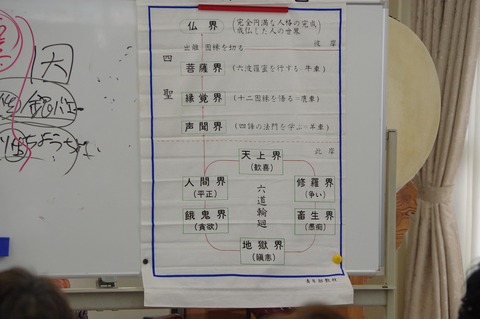 仏界 (完全円満な人格の完成
成仏した人の世界)
出離 因縁を切る 彼岸
四聖
菩薩界 (六波羅蜜を行する=牛車)
縁覚界 (十二因縁を悟る=鹿車)
声聞界 (四諦の法門を学ぶ=羊車)
此岸
天上界
(歓喜)
人間界
(平正)
修羅界
(争い)
六道輪廻
餓鬼界
(貪欲)
畜生界
(愚痴)
地獄界
(瞋恚)
因